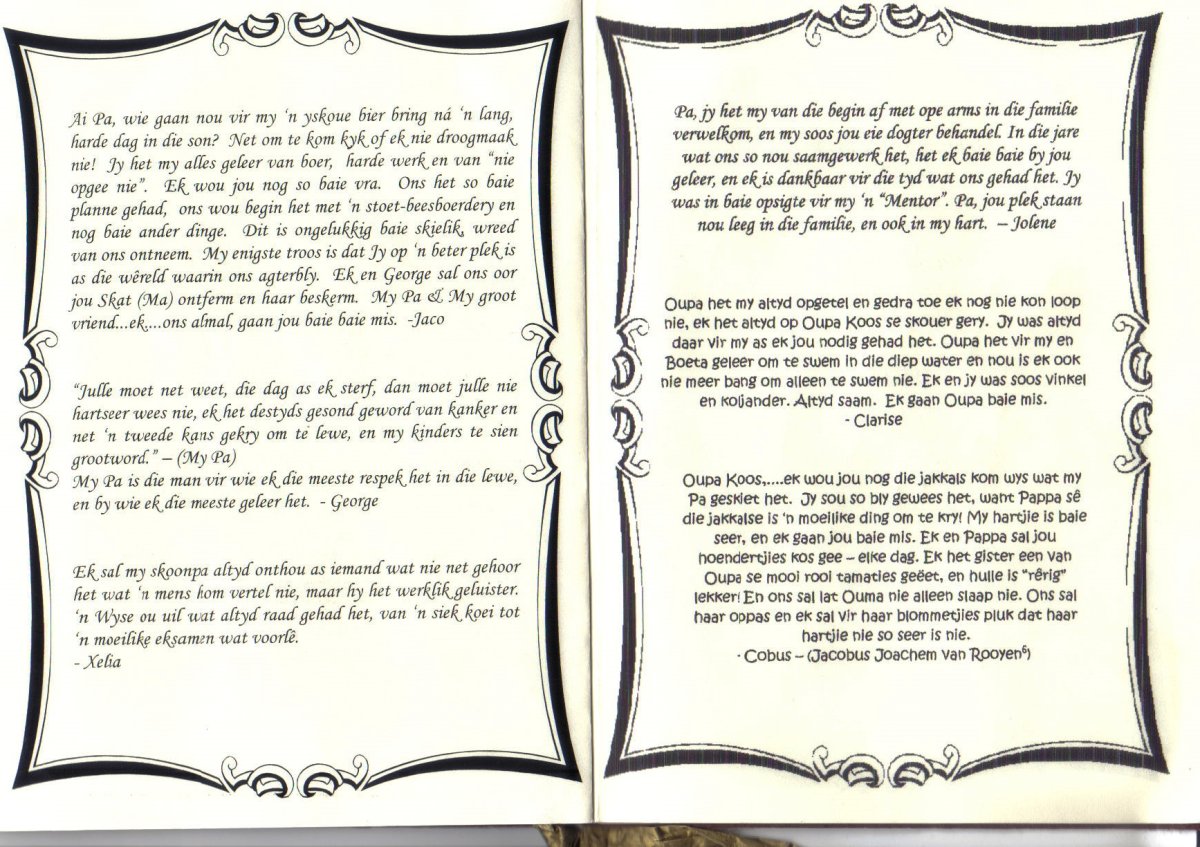 Ai Pa, wie gaan nou vir my ‘n yskoue bier bring ná ‘n lang,
harde dag in die son? Net om te kom kyk of ek nie droogmaak
nie! Jy het my alles geleer van boer, harde werk en van “nie
opgee nie”. Ek wou jou nog so baie vra. Ons het so baie
planne gehad, ons wou begin het met ‘n stoet-beesboerdery en
nog baie ander dinge. Dit is ongelukkig baie skielik, wreed
van ons ontneem. My enigste troos is dat Jy op ‘n beter plek is
as die wêreld waarin ons agterbly. Ek en George sal ons oor
jou Skat (Ma) ontferm en haar beskerm. My Pa & My groot
vriend...ek....ons almal, gaan jou baie baie mis. -Jaco
“Julle moet net weet, die dag as ek sterf, dan moet julle nie
hartseer wees nie, ek het destyds gesond geword van kanker en
net ‘n tweede kans gekry om te lewe, en my kinders te sien
grootword.” – (My Pa)
My Pa is die man vir wie ek die meeste respek het in die lewe,
en by wie ek die meeste geleer het. - George
Ek sal my skoonpa altyd onthou as iemand wat nie net gehoor
het wat ‘n mens hom vertel nie, maar hy het werklik geluister.
‘n Wyse ou uil wat altyd raad gehad het, van ‘n siek koei tot
‘n moeilike eksamen wat voorlê.
- Xelia
Pa, jy het my van die begin af met ope arms in die familie
verwelkom, en my soos jou eie dogter behandel. In die jare
wat ons so nou saamgewerk het, het ek baie baie by jou
geleer, en ek is dankbaar vir die tyd wat ons gehad het. Jy
was in baie opsigte vir my ‘n “Mentor”. Pa, jou plek staan
nou leeg in die familie, en ook in my hart. – Jolene
Oupa het my altyd opgetel en gedra toe ek nog nie kon loop
nie, ek het altyd op Oupa Koos se skouer gery. Jy was altyd
daar vir my as ek jou nodig gehad het. Oupa het vir my en
Boeta geleer om te swem in die diep water en nou is ek ook
nie meer bang om alleen te swem nie. Ek en jy was soos vinkel
en koljander. Altyd saam. Ek gaan Oupa baie mis.
- Clarise
Oupa Koos,....ek wou jou nog die jakkals kom wys wat my
Pa geskiet het. Jy sou so bly gewees het, want Pappa sê
die jakkalse is ‘n moeilike ding om te kry! My hartjie is baie
seer, en ek gaan jou baie mis. Ek en Pappa sal jou
hoendertjies kos gee – elke dag. Ek het gister een van
Oupa se mooi rooi tamaties geëet, en hulle is “rêrig”
lekker! En ons sal lat Ouma nie alleen slaap nie. Ons sal
haar oppas en ek sal vir haar blommetjies pluk dat haar
hartjie nie so seer is nie.
- Cobus – (Jacobus Joachem van Rooyen⁶)